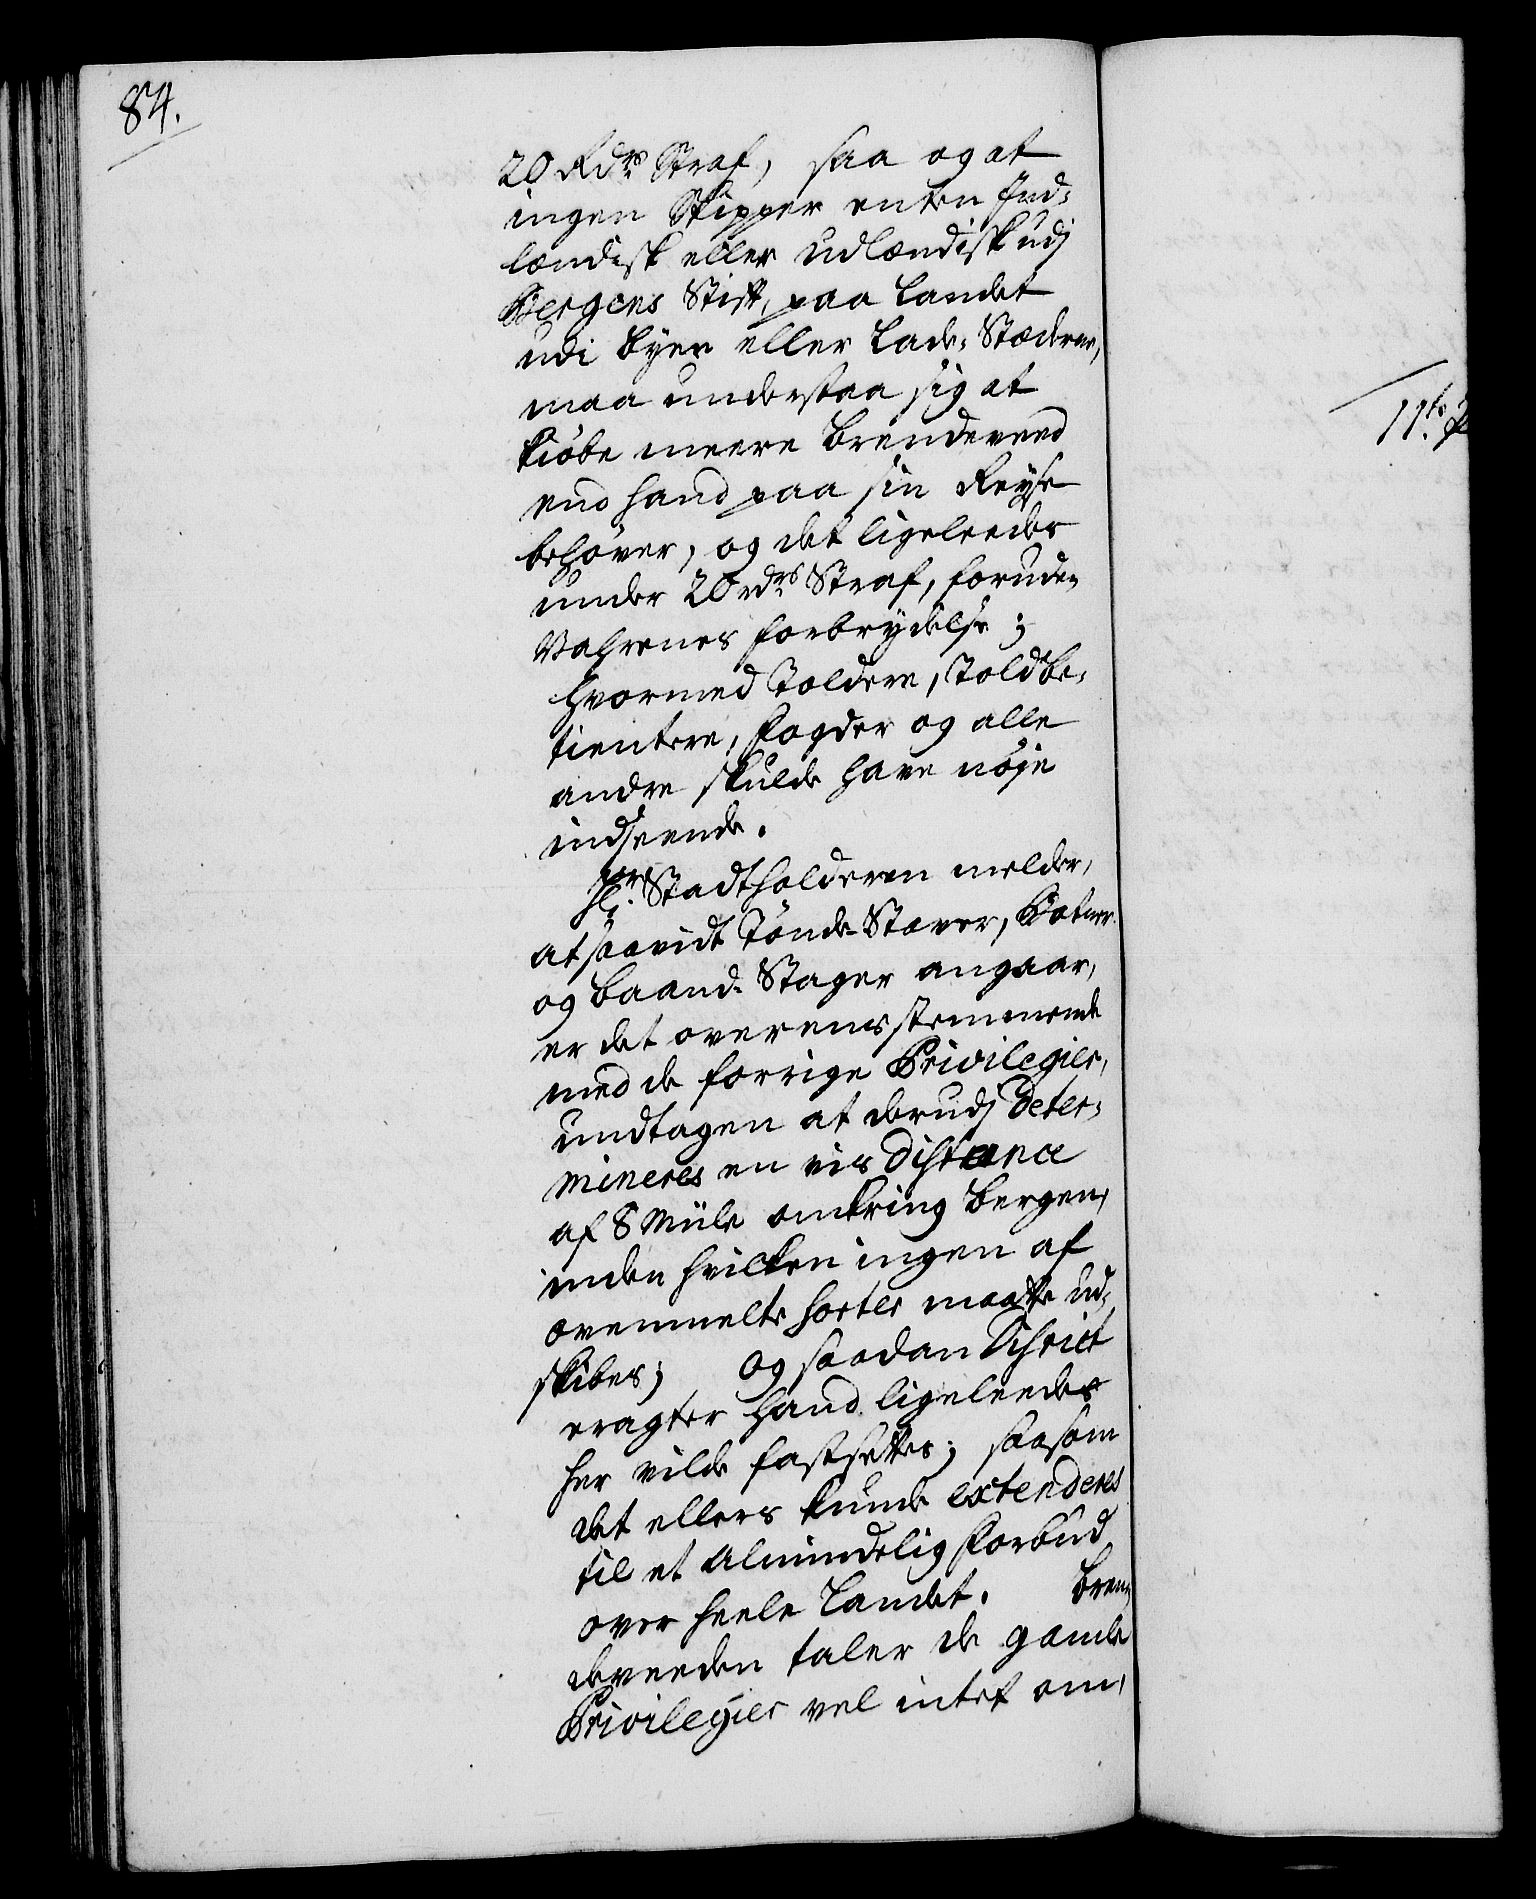 84.
20 Rdrs Straf, saa og at
ingen Skipper enten Ind-
lændisk eller Udlændisk udj
Bergens Stift, paa Landet
udi Byer eller Lade-Stæderne,
maa understaa sig at
kiøbe meere Brendeveed
end hand paa sin Reyse
behøver, og det ligeleedes
under 20 rdrs Straf, foruden
Vahrenes forbrydelse;
hvormed Toldere, Toldbe-
tientere, Fogder og alle
andre skulde have nøje
indseende.
Stadtholderen melder,
at saavidt Tønde-Staver, Botner
og Baand-Stager angaar,
er det overensstemmende
med de forrige Privilegier,
undtagen at derudj deter-
mineres en vis distance
af 8 Miile omkring Bergen,
inden hvilken ingen af
ovenmelte sorter maatte ud-
skibes; og saadan District
eragter hand ligeleedes
her vilde fastsettes; saasom
det ellers kunde extenderes
til et Almindelig Forbud
over heele Landet. Bren-
deveeden taler de gamle
Privilegier vel intet om,
11te